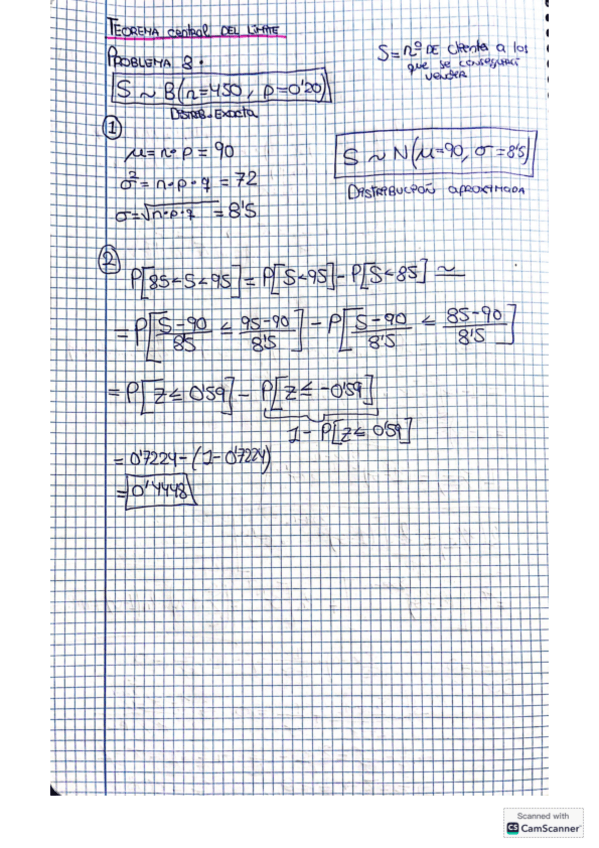 TEOREMA central DEL LÍMITE
PROBLEMA 8.
S = nº DE clientes a los
que se conseguirá
vender
S ~ B(n=450, p=0'20)
DISTRIB. EXACTA
①
μ = n · p = 90
σ² = n · p · q = 72
σ = √n · p · q = 8'5
S ~ N(μ=90, σ=8'5)
DISTRIBUCIÓN APROXIMADA
②
P[85<S<95] = P[S<95] - P[S<85] ≃
= P[S-90/8'5 ≤ 95-90/8'5] - P[S-90/8'5 ≤ 85-90/8'5]
= P[Z ≤ 0'59] - P[Z ≤ -0'59]
1 - P[Z ≤ 0'59]
= 0'7224 - (1 - 0'7224)
= 0'4448
Scanned with
CS CamScanner